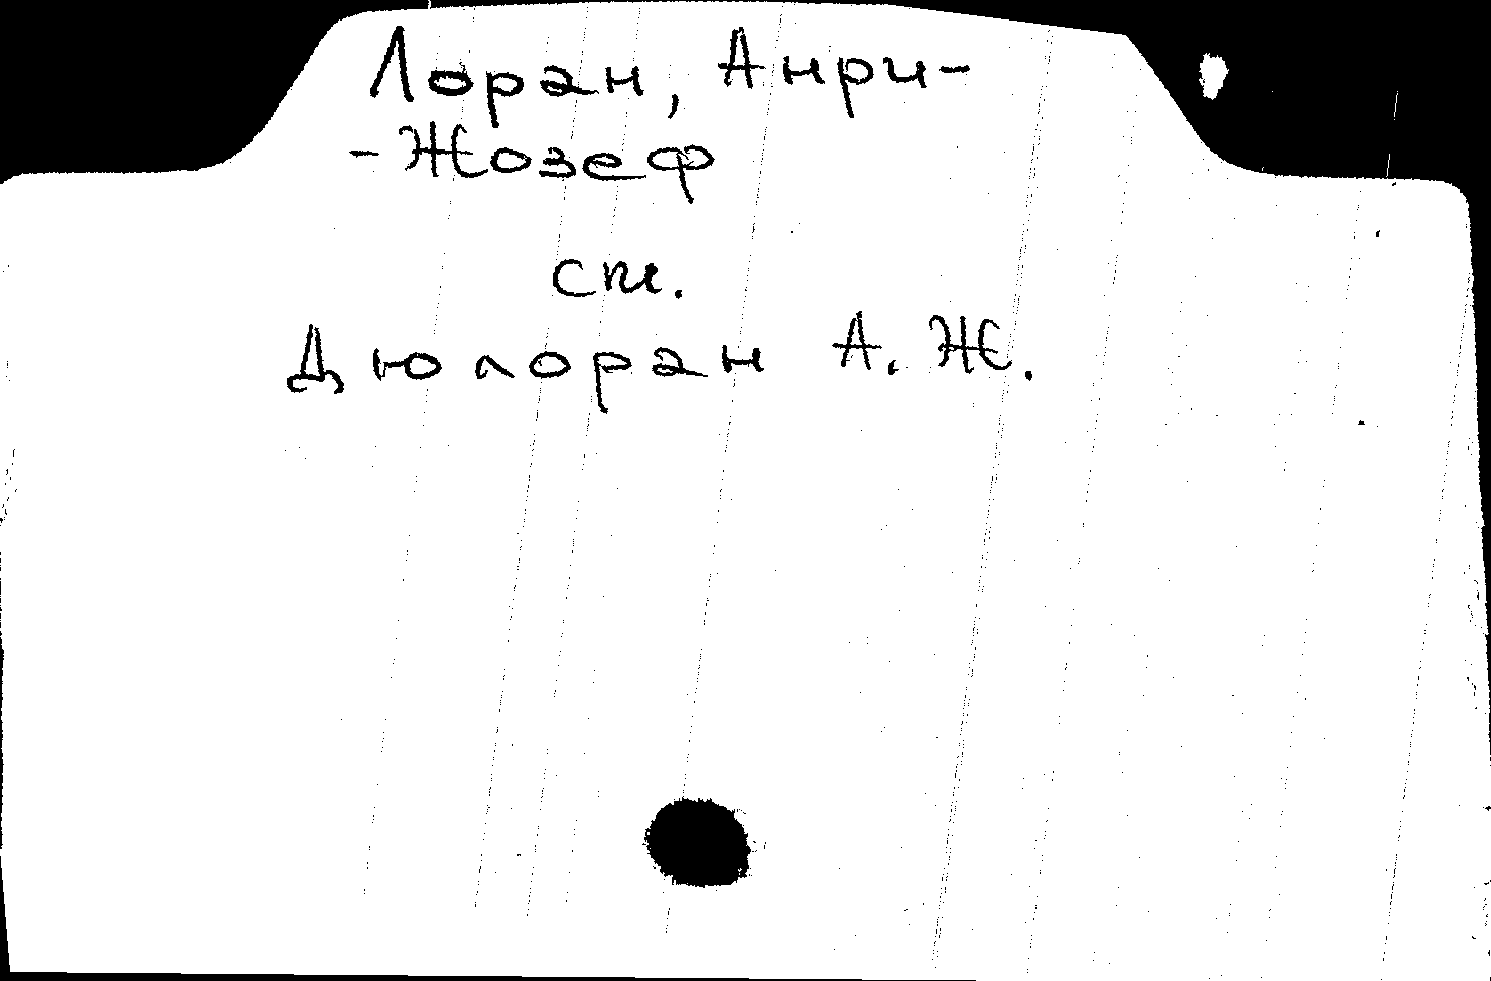 Лоран, Анри-
-Жозеф
см.
Дюлоран А. Ж.